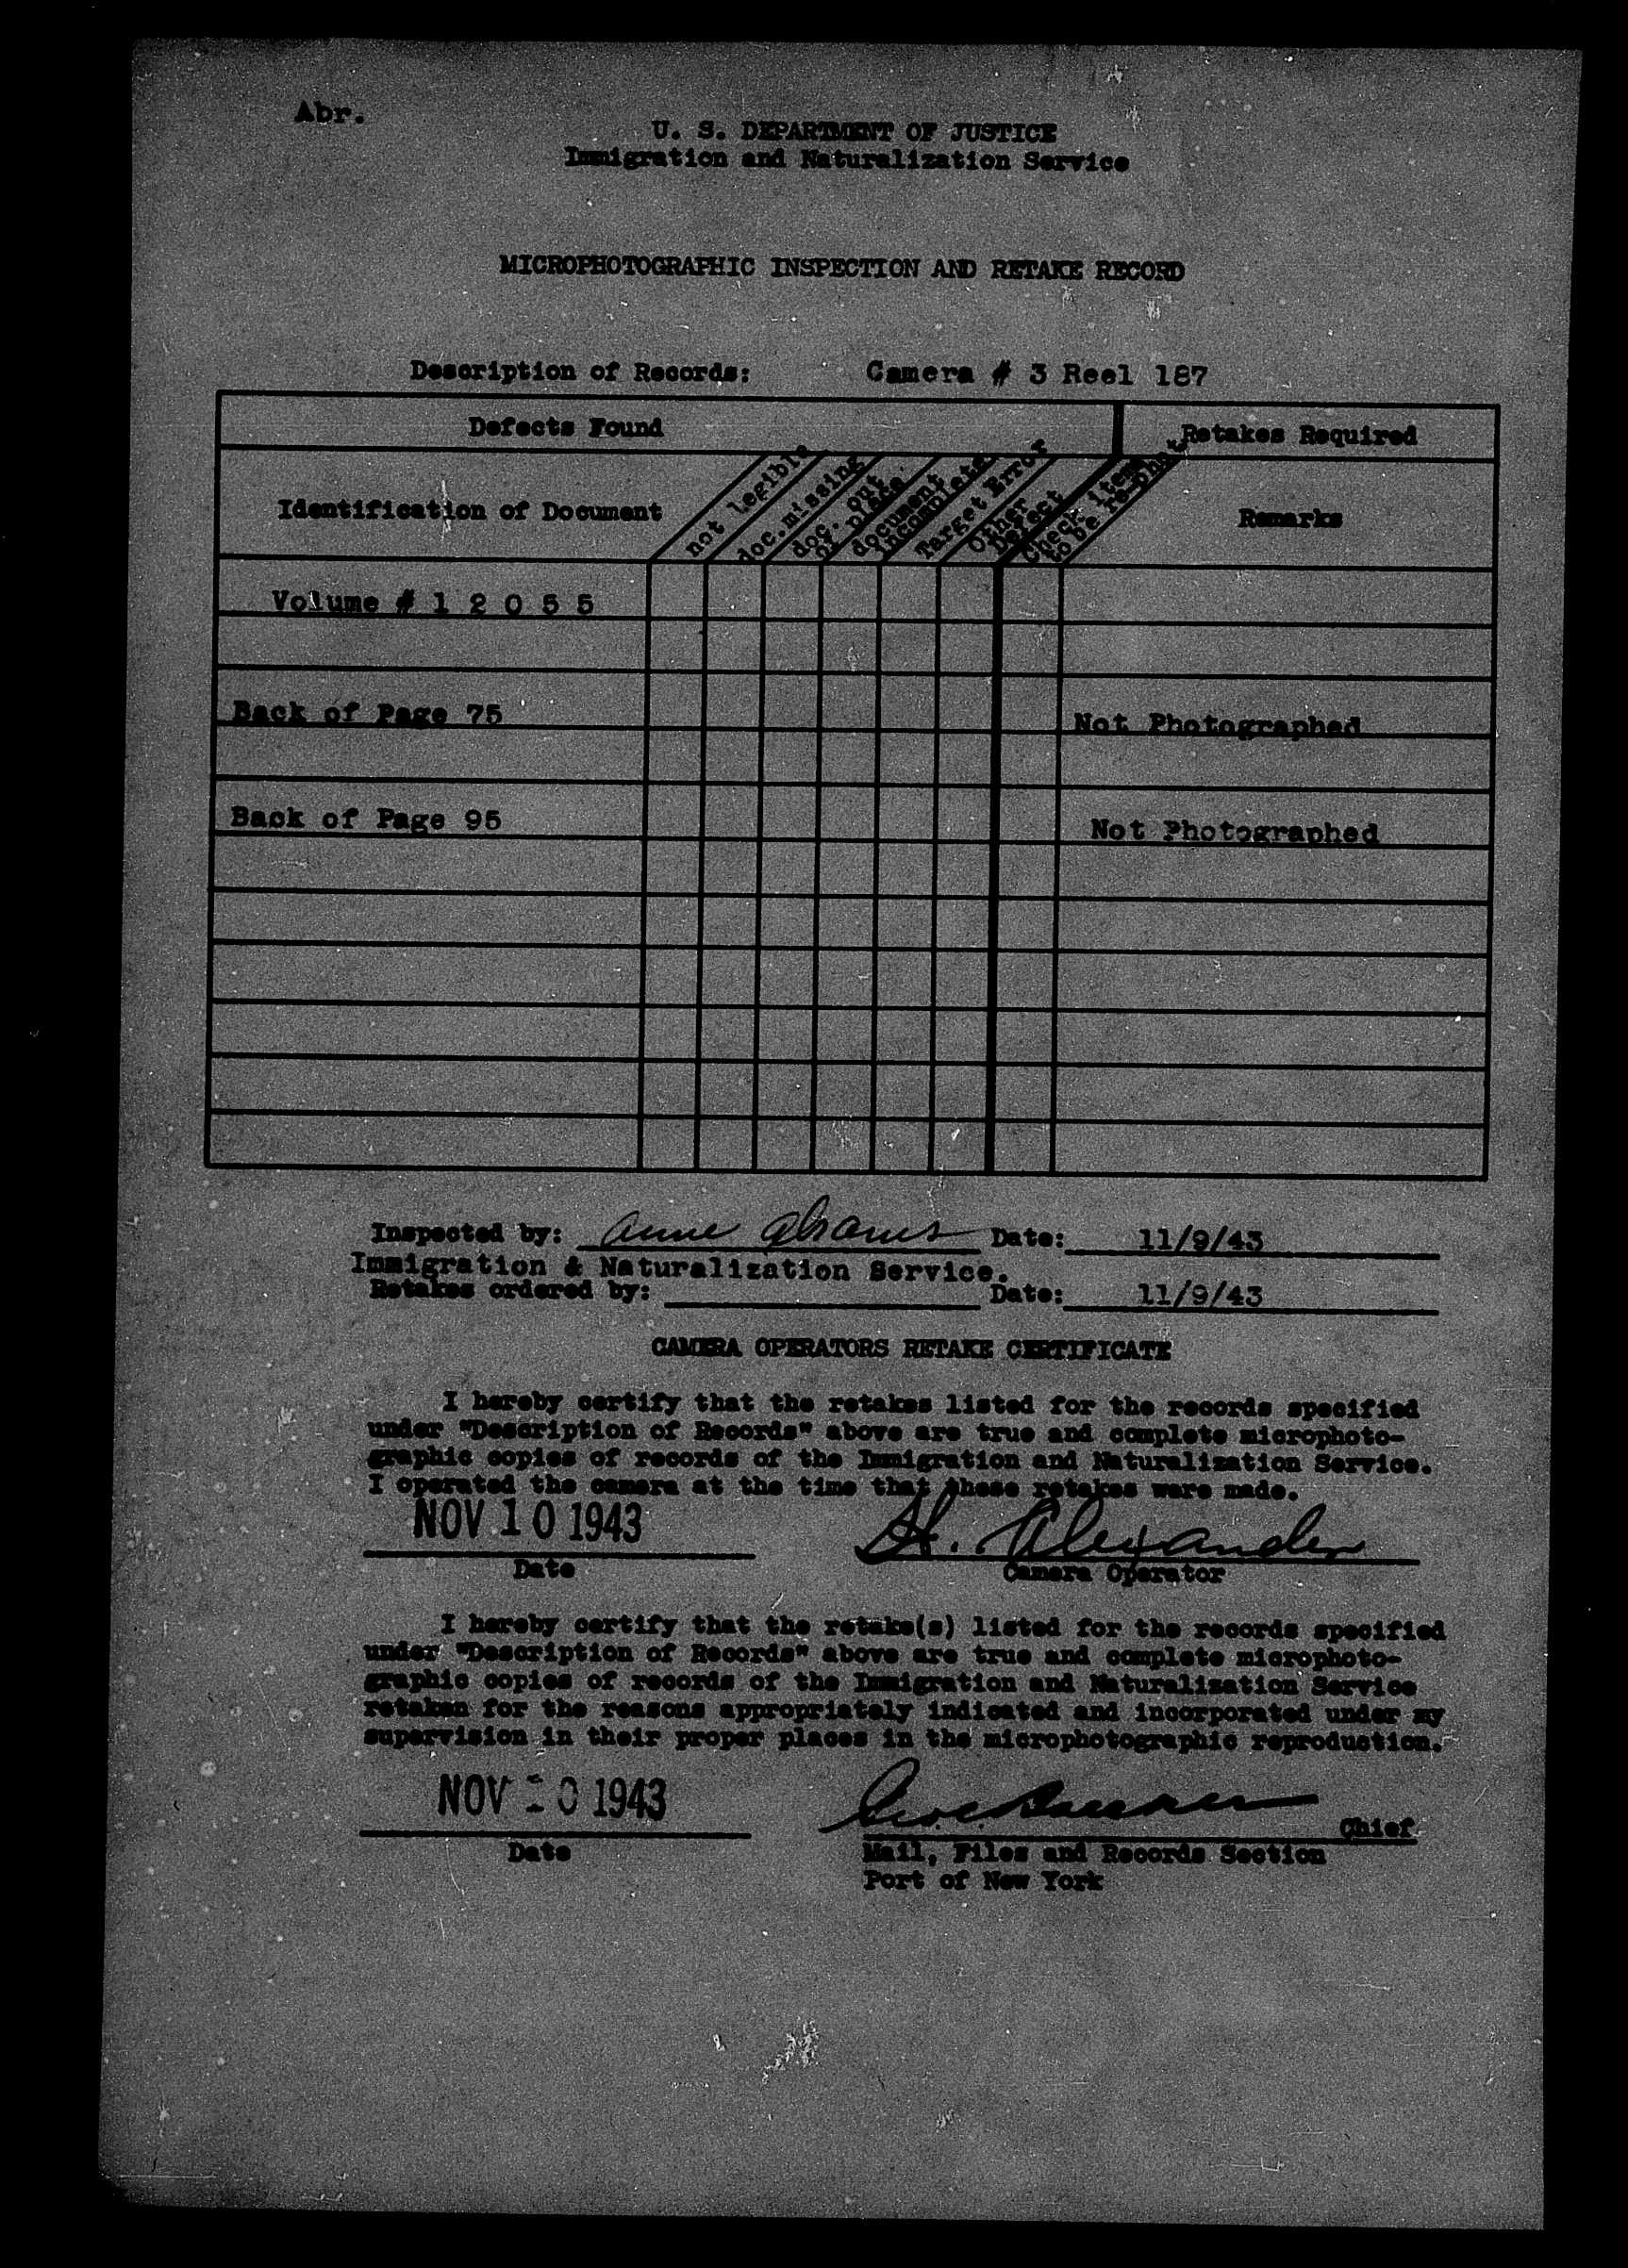 Abr.
U. S. DEPARTMENT OF JUSTICE
Immigration and Naturalization Service
MICROPHOTOGRAPHIC INSPECTION AND RETAKE RECORD
Description of Records: Camera # 3 Reel 187
Defects Found
Retakes Required
Identification of Document
not legible
doc.missing
doc. out
of place.
document
incomplete.
Target Error
Other
Defect
Check item
to be re-phot.
Remarks
Volume # 1 2 0 5 5
Back of Page 75 Not Photographed
Back of Page 95 Not Photographed
Inspected by: Anne Abrams Date: 11/9/43
Immigration & Naturalization Service.
Retakes ordered by: Date: 11/9/43
CAMERA OPERATORS RETAKE CERTIFICATE
I hereby certify that the retakes listed for the records specified
under "Description of Records" above are true and complete microphoto-
graphic copies of records of the Immigration and Naturalization Service.
I operated the camera at the time that these retakes were made.
NOV 10 1943 H. Alexander
Date Camera Operator
I hereby certify that the retake(s) listed for the records specified
under "Description of Records" above are true and complete microphoto-
graphic copies of records of the Immigration and Naturalization Service
retaken for the reasons appropriately indicated and incorporated under my
supervision in their proper places in the microphotographic reproduction.
NOV 10 1943
Chief
Date
Mail, Files and Records Section
Port of New York